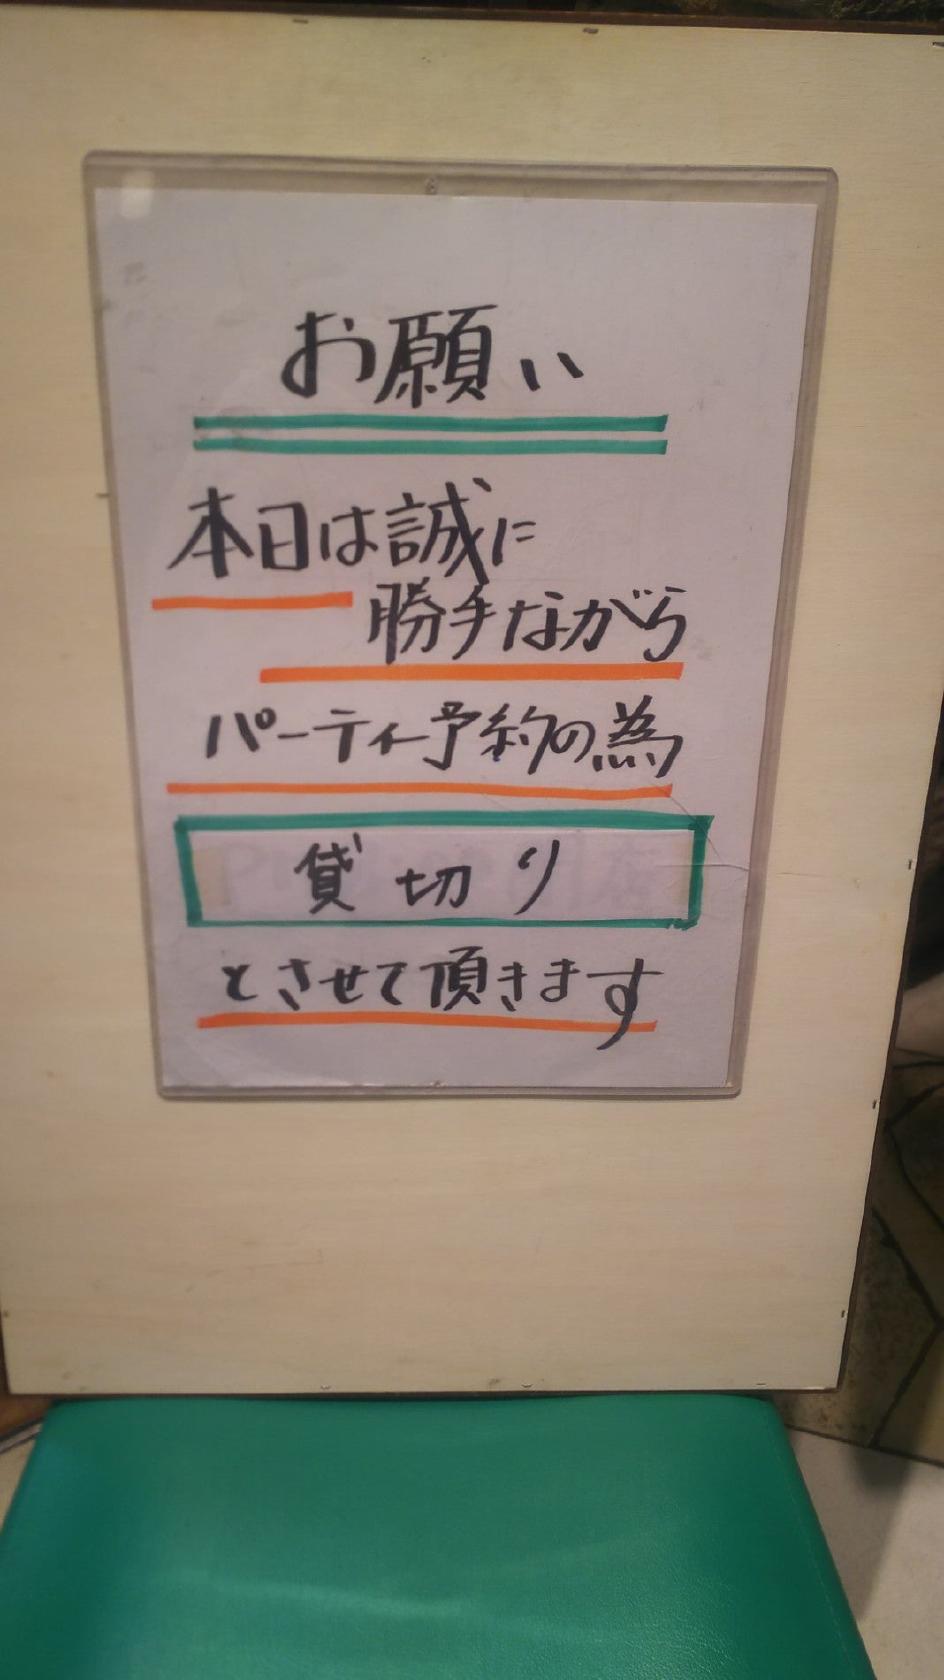 お願い
本日は誠に
勝手ながら
パーティー予約の為
貸切り
とさせて頂きます